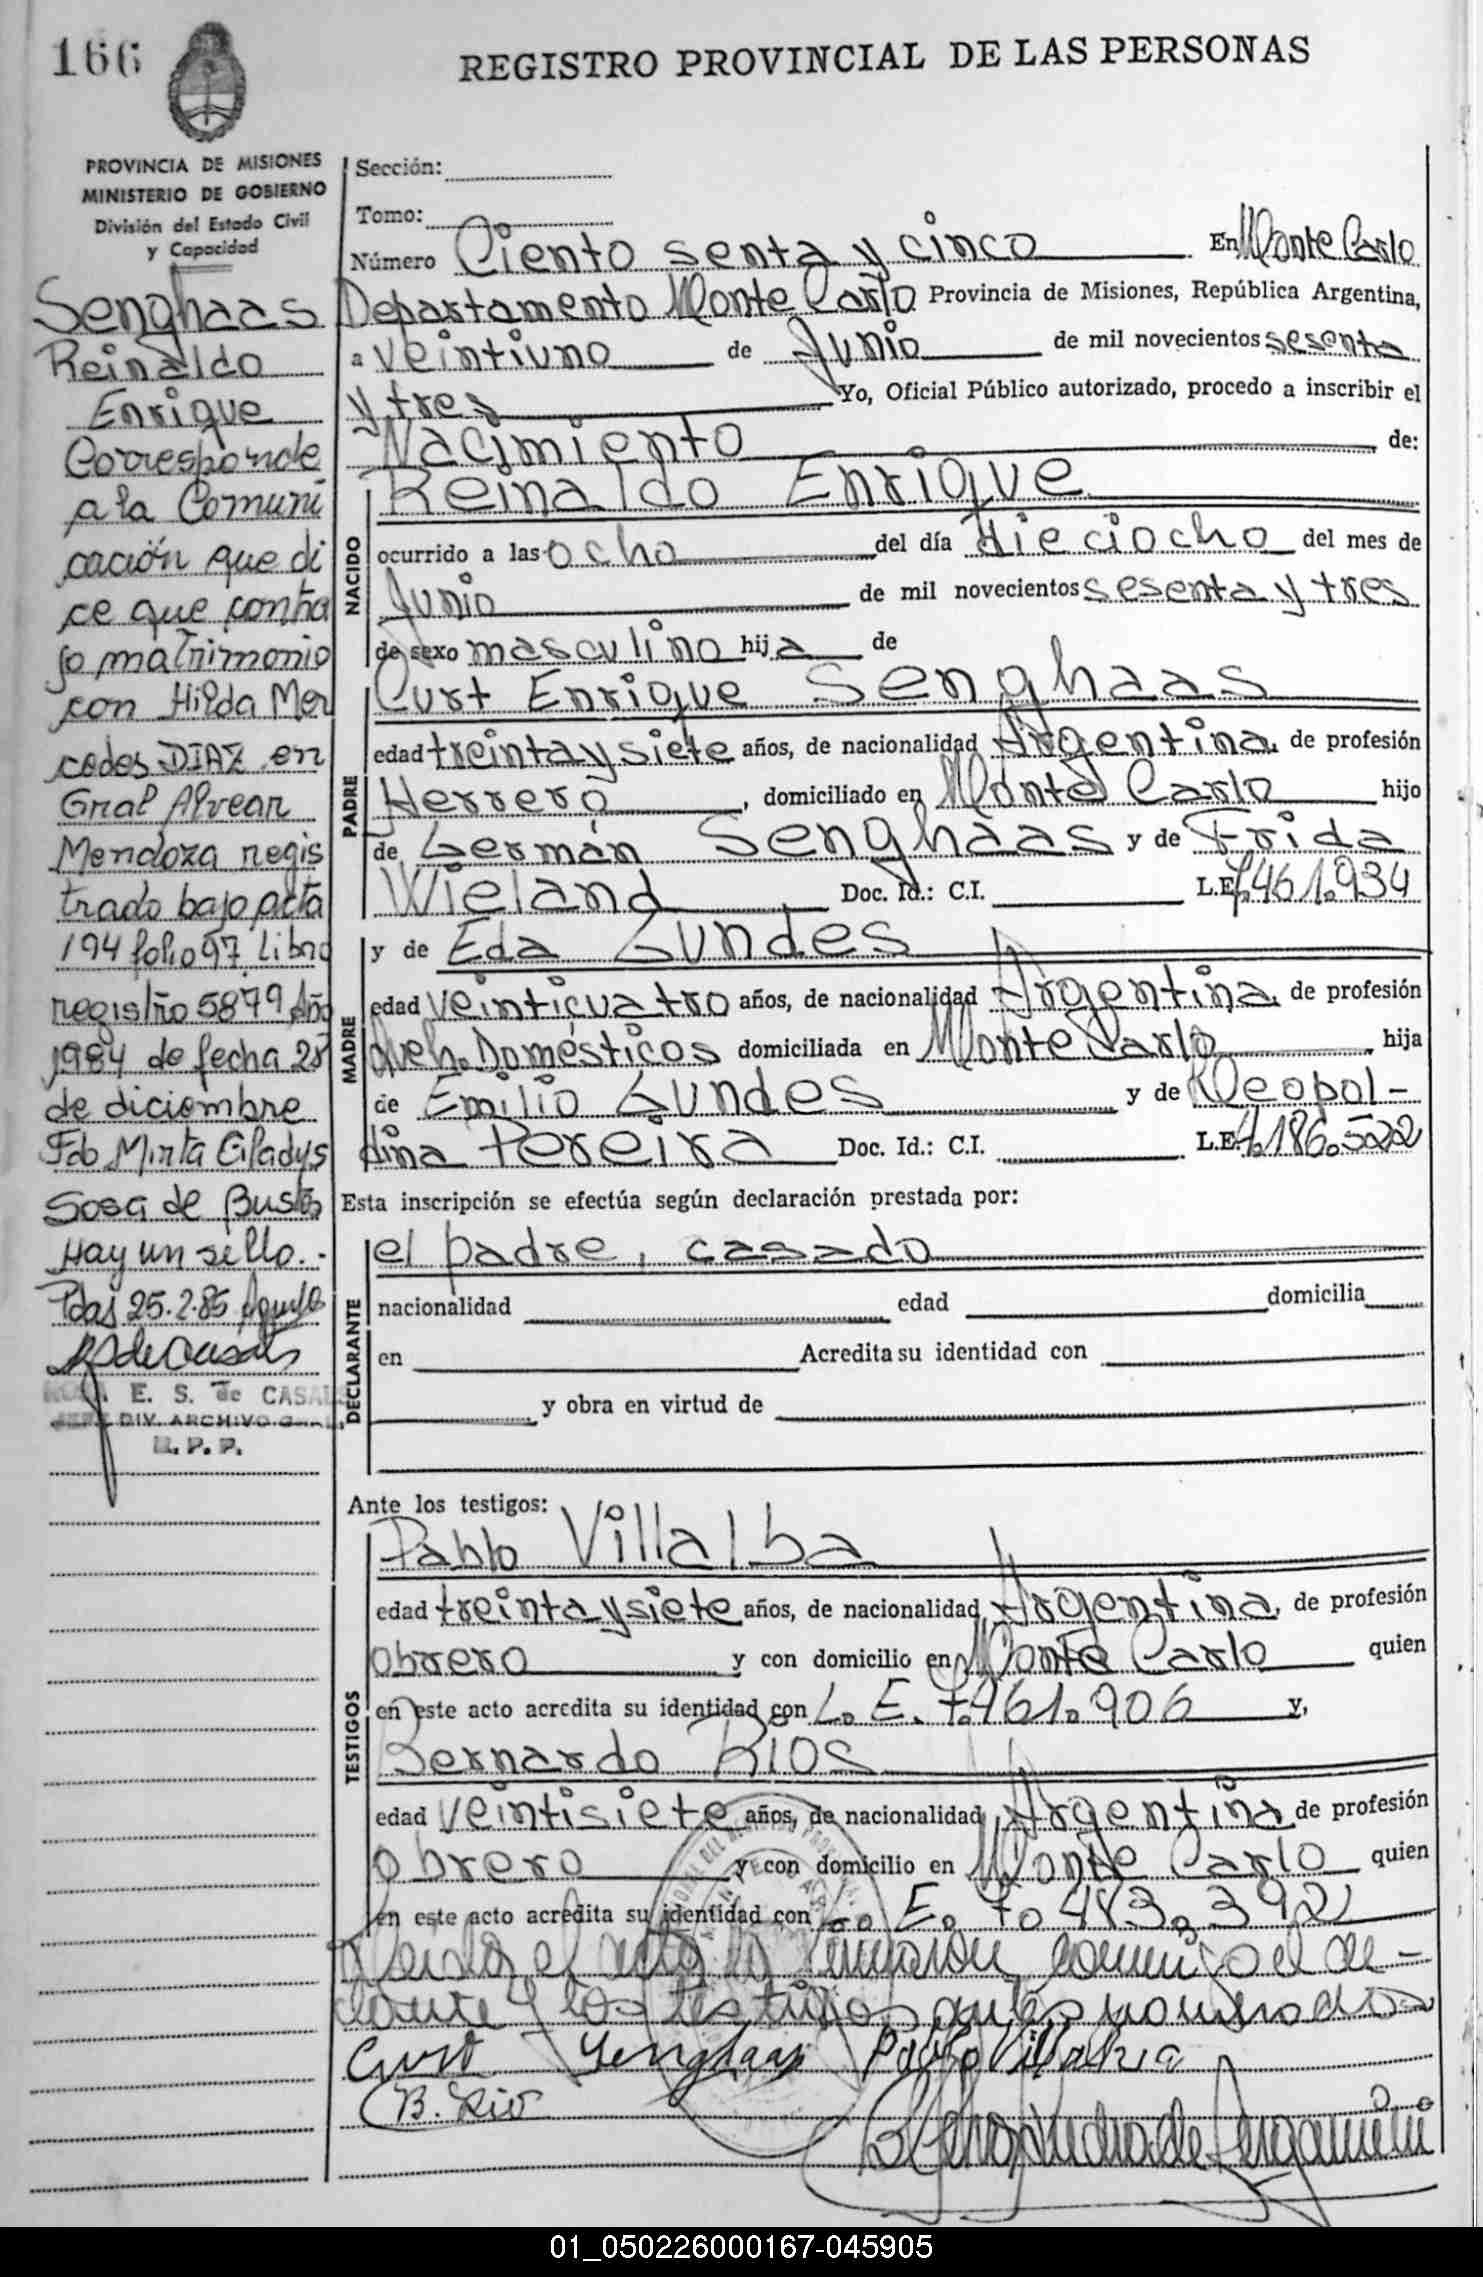 166
REGISTRO PROVINCIAL DE LAS PERSONAS
PROVINCIA DE MISIONES
MINISTERIO DE GOBIERNO
División del Estado Civil
y Capacidad
Senghaas
Reinaldo
Enrique
Corresponde
a la Comuni
cación que di
ce que contra
jo matrimonio
con Hilda Mer
cedes DIAZ en
Gral Alvear
Mendoza regis
trado bajo acta
194 folio 97 Libro
registro 5879 Año
1984 de fecha 28
de diciembre
Fdo Mirta Gladys
Sosa de Bustos
Hay un sello.-
Pdas 25.2.85
E. S. de CASALS
JEFE DIV. ARCHIVO GRAL
R. P. P.
Sección:
Tomo:
Número Ciento senta y cinco En Monte Carlo
Departamento Monte Carlo Provincia de Misiones, República Argentina,
a veintiuno de Junio de mil novecientos sesenta
y tres Yo, Oficial Público autorizado, procedo a inscribir el
Nacimiento de:
NACIDO
Reinaldo Enrique
ocurrido a las ocho del día dieciocho del mes de
Junio de mil novecientos sesenta y tres
de sexo masculino hij a de
PADRE
Curt Enrique Senghaas
edad treinta y siete años, de nacionalidad Argentina, de profesión
Herrero, domiciliado en Monte Carlo hijo
de Germán Senghaas y de Frida
Wieland Doc. Id.: C.I. L.E. 7.461.934
MADRE
y de Eda Gundes
edad veinticuatro años, de nacionalidad Argentina, de profesión
Queh. Domésticos domiciliada en Monte Carlo, hija
de Emilio Gundes y de Deopol-
dina Pereira Doc. Id.: C.I. L.E. 4.186.522
Esta inscripción se efectúa según declaración prestada por:
DECLARANTE
el padre, casado
nacionalidad edad domicilia
en Acredita su identidad con
y obra en virtud de
Ante los testigos:
TESTIGOS
Pablo Villalba
edad treinta y siete años, de nacionalidad Argentina, de profesión
obrero y con domicilio en Monte Carlo quien
en este acto acredita su identidad con L. E. 7.461.906 y,
Bernardo Rios
edad veintisiete años, de nacionalidad Argentina de profesión
obrero y con domicilio en Monte Carlo quien
en este acto acredita su identidad con L. E. 7.483.392
el acta la conmigo el de-
clarante y los testigos antes nombrados
Curt Senghaas Pablo Villalba
B. Rio
01_050226000167-045905